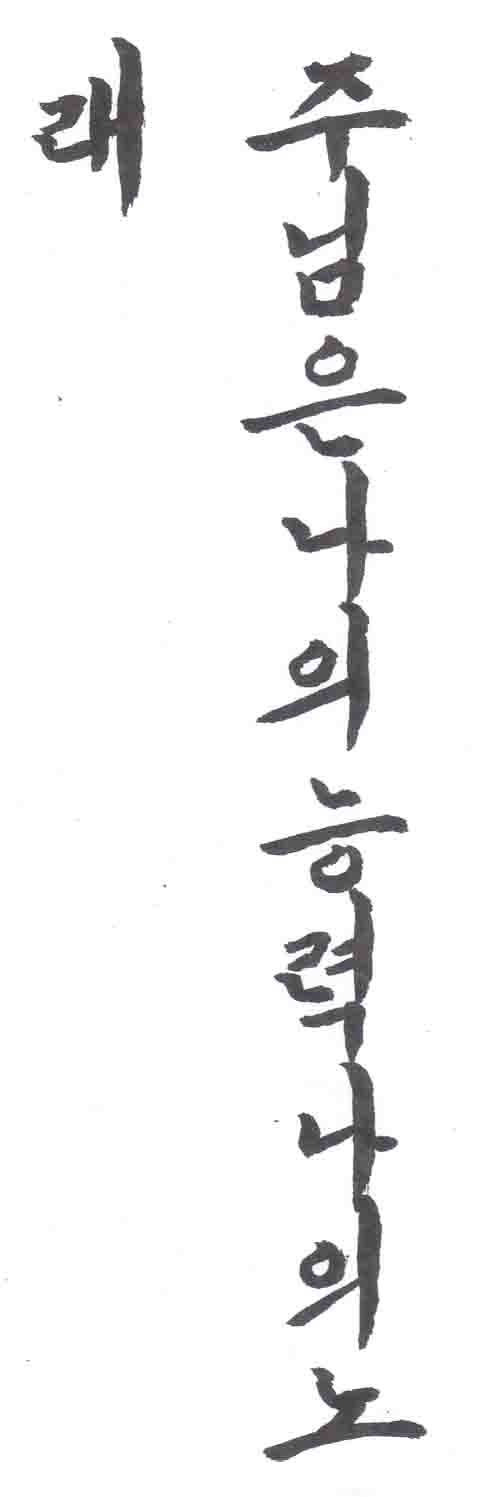 주님은나의능력나의노
래